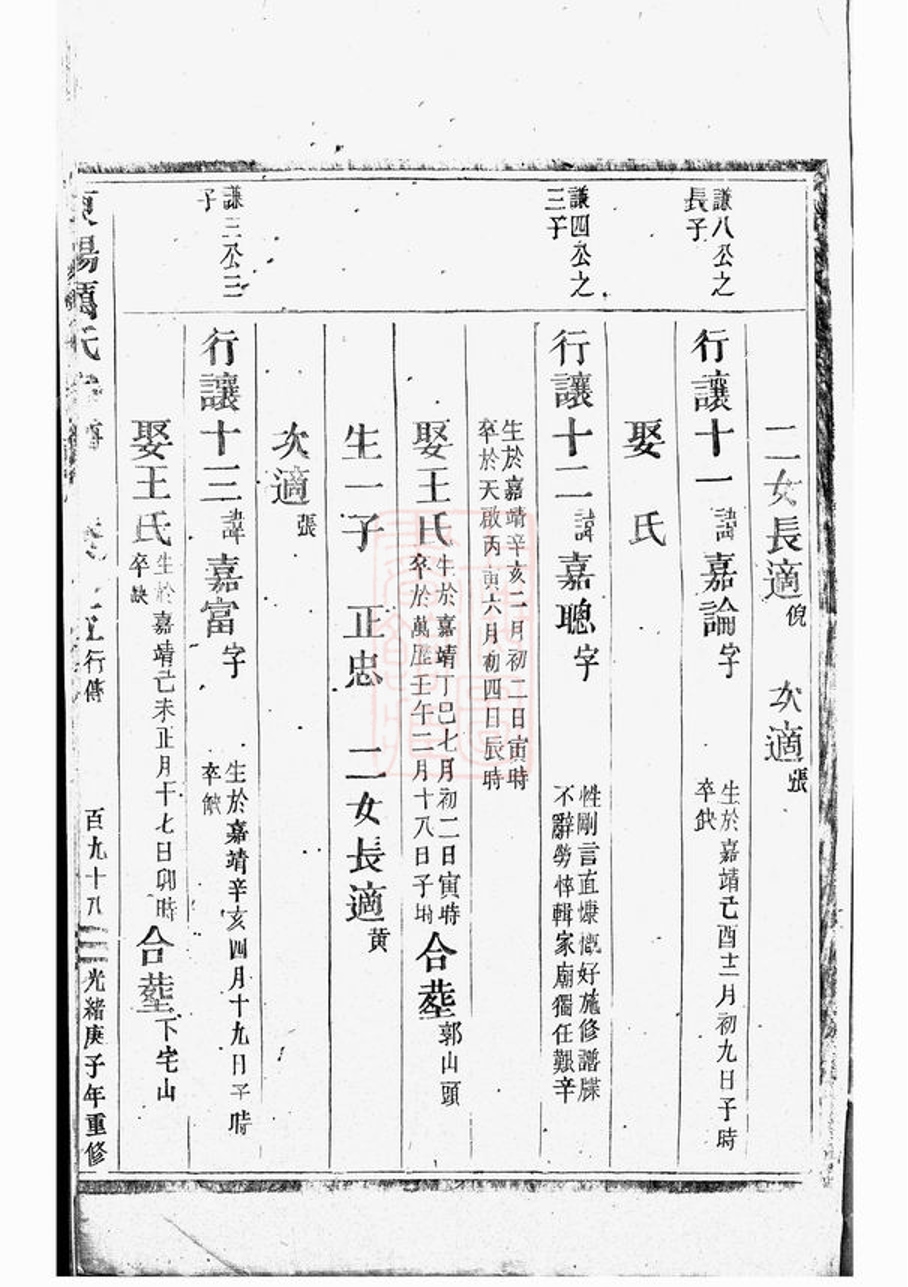 二女長適倪 次適張
謙八公之
長子
行讓十一諱嘉論字
生於嘉靖己酉十二月初九日子時
卒缺
娶 氏
謙四公之
三子
行讓十二諱嘉聰字
性剛言直慷慨好施修譜牒
不辭勞悴輯家廟獨任艱辛
生於嘉靖辛亥二月初二日寅時
卒於天啟丙寅六月初四日辰時
娶王氏
生於嘉靖丁巳七月初二日寅時
卒於萬歷壬午二月十八日子時
合塟郭山頭
生一子 正忠 二女長適黃
次適張
謙三公三
子
行讓十三諱嘉富字
生於嘉靖辛亥四月十九日子時
卒缺
娶王氏
生於嘉靖己未正月十七日卯時
卒缺
合塟下宅山
陽 氏 行傳 百九十八 光緒庚子年重修